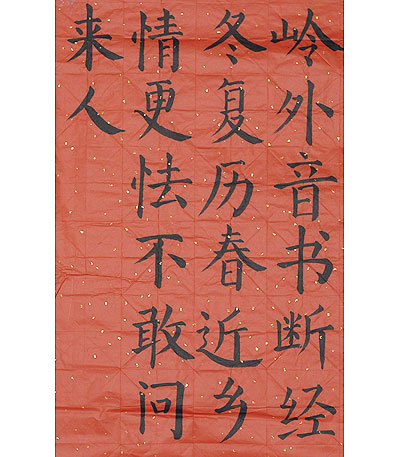 岭外音书断经
冬复历春近乡
情更怯不敢问
来人